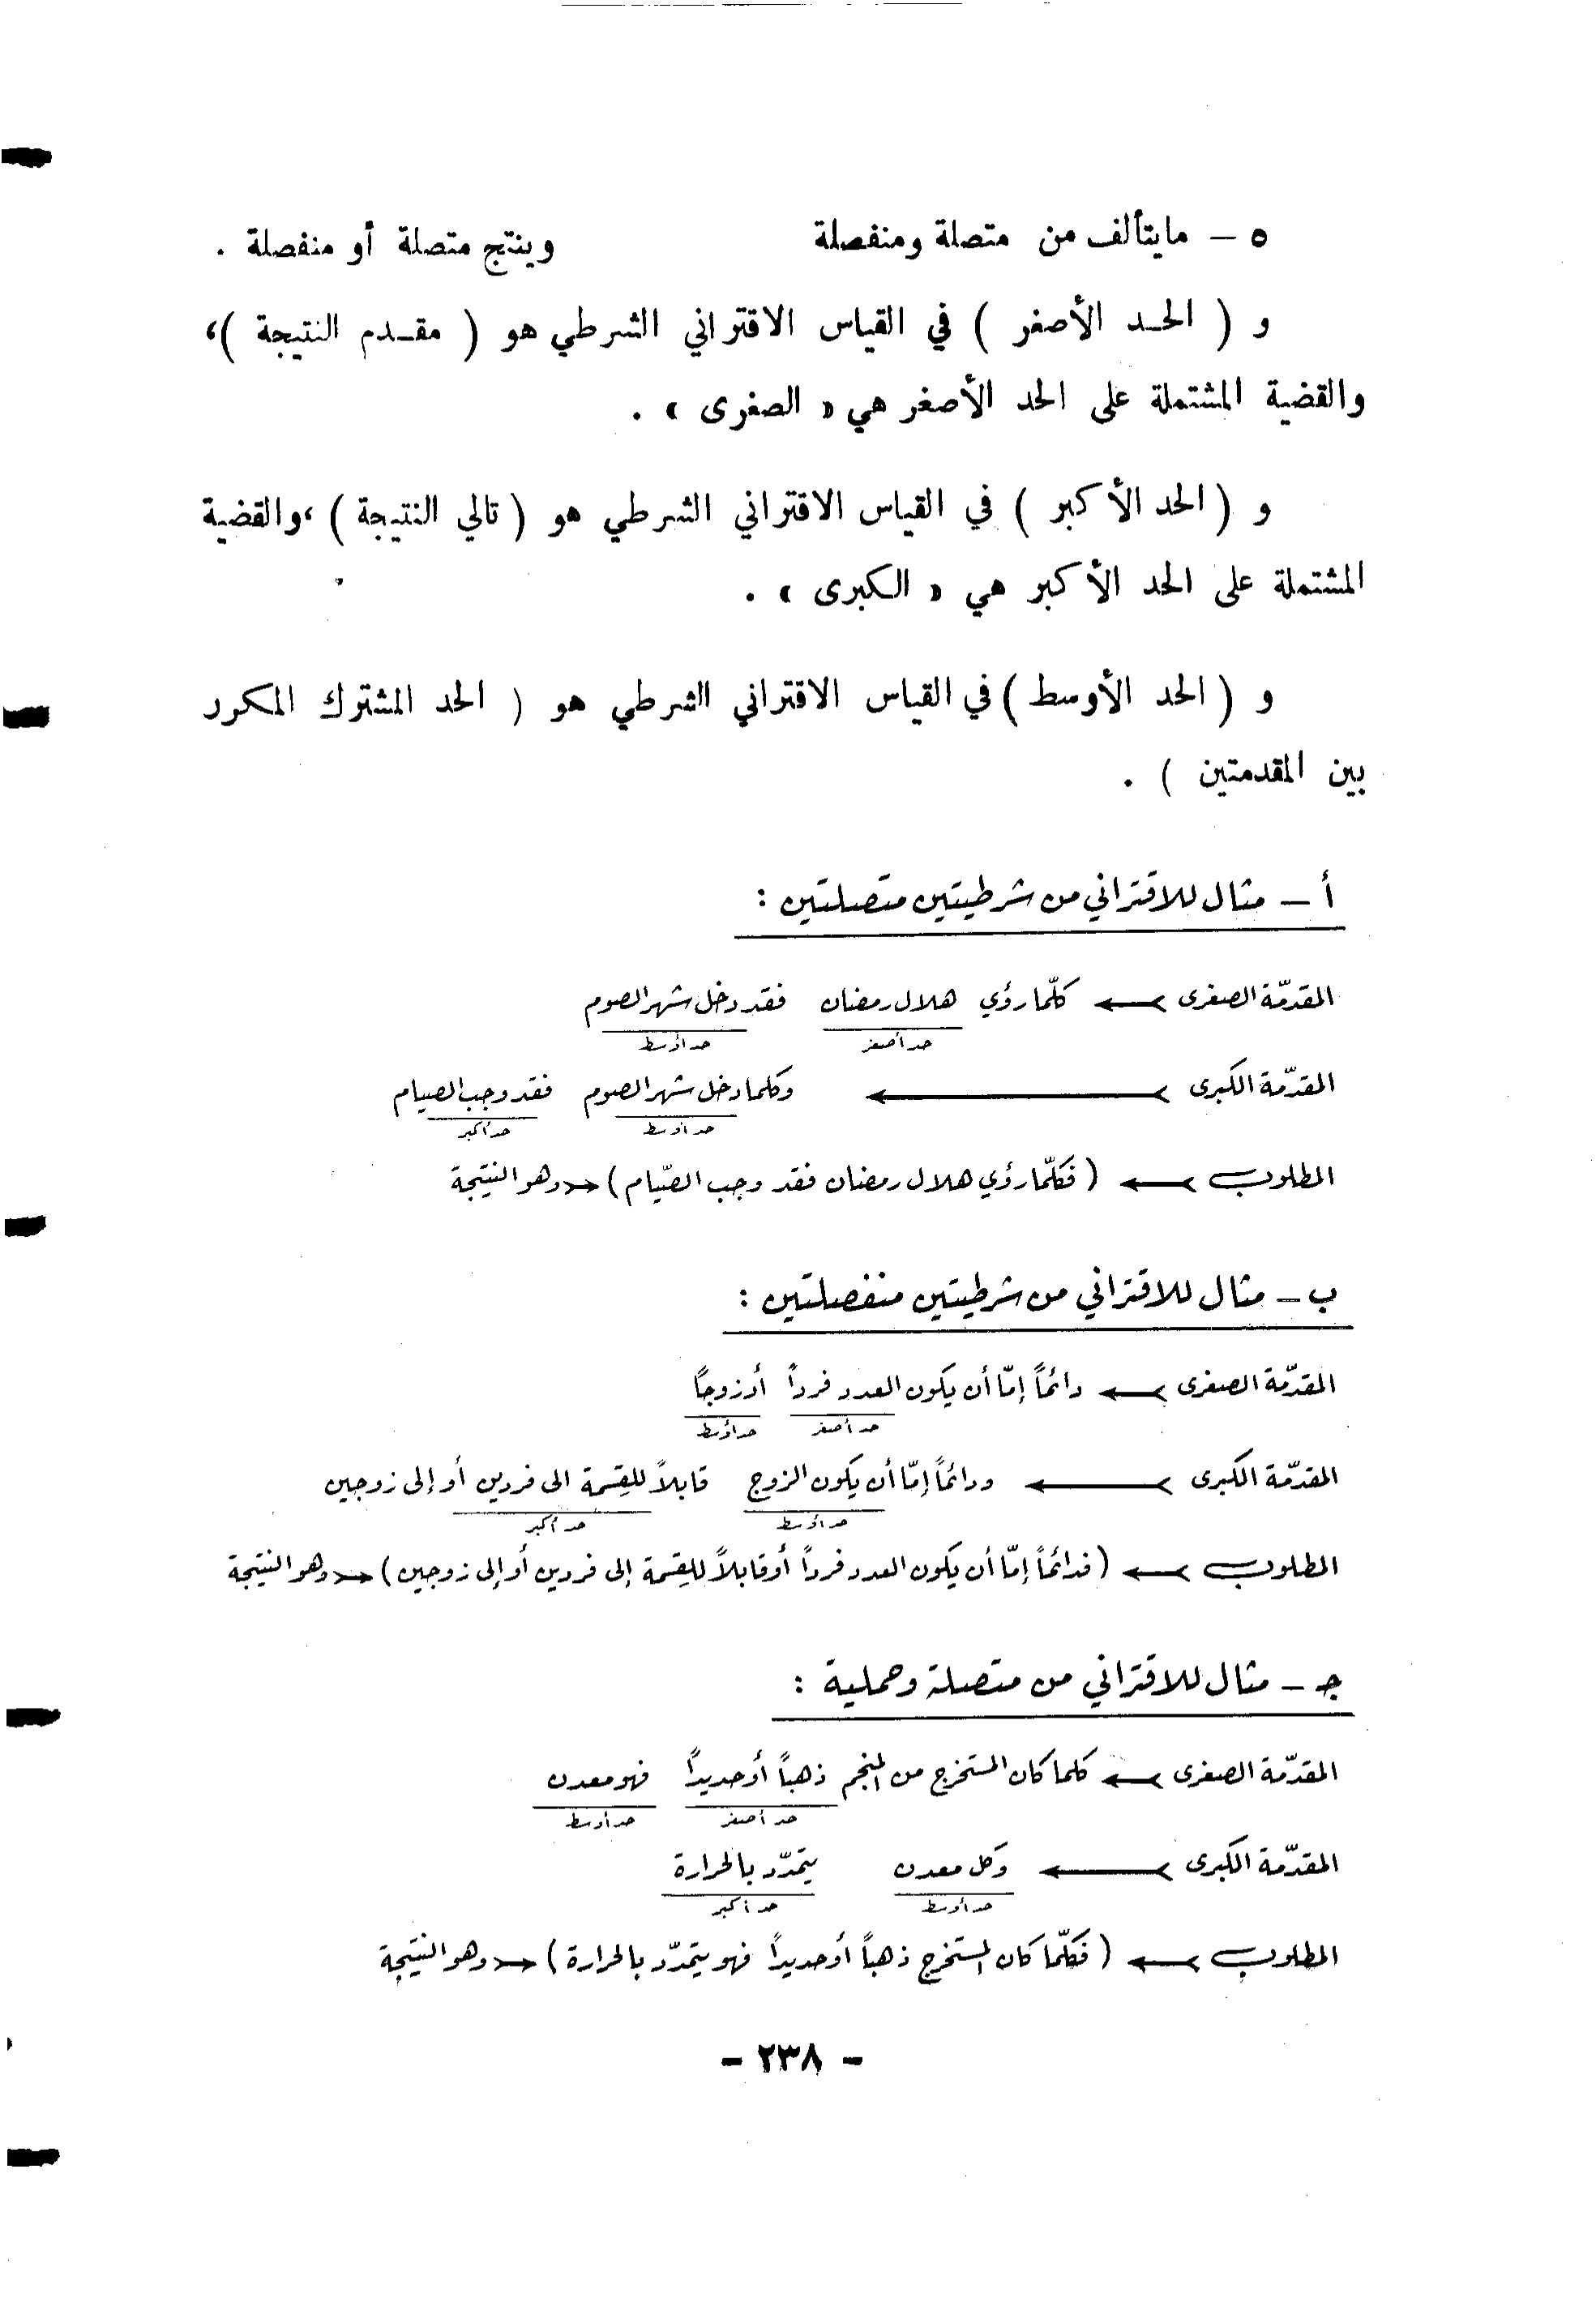 ٥ – مايتألف من متصلة ومنفصلة وينتج متصلة أو منفصلة .
و ( الحـد الأصغر ) في القياس الاقتراني الشرطي هو ( مقـدم النتيجة )،
والقضية المشتملة على الحد الأصغر هي « الصغرى » .
و ( الحد الأكبر ) في القياس الاقتراني الشرطي هو ( تالي النتيجة ) ،والقضية
المشتملة على الحد الأكبر هي « الكبرى » .
و ( الحد الأوسط ) في القياس الاقتراني الشرطي هو ( الحد المشترك المكرر
بين المقدمتين ) .
أ – مثال للاقتراني من شرطيتين متصلتين :
المقدّمة الصغرى ← كلّما رؤي هلال رمضان فقد دخل شهر الصوم
حد أصغر حد أوسط
المقدّمة الكبرى ← وكلما دخل شهر الصوم فقد وجب الصيام
حد أوسط حد أكبر
المطلوب ← ( فكلّما رؤي هلال رمضان فقد وجب الصّيام ) ← وهو النتيجة
ب – مثال للاقتراني من شرطيتين منفصلتين :
المقدّمة الصغرى ← دائماً إمّا أن يكون العدد فرداً أو زوجاً
حد أصغر حد أوسط
المقدّمة الكبرى ← ودائماً إمّا أن يكون الزوج قابلاً للقِسمة الى فردين أو إلى زوجين
حد أوسط حد أكبر
المطلوب ← ( فدائماً إمّا أن يكون العدد فرداً أو قابلاً للقِسمة إلى فردين أو إلى زوجين ) ← وهو النتيجة
جـ – مثال للاقتراني من متصلة وحملية :
المقدّمة الصغرى ← كلما كان المستخرج من المنجم ذهباً أو حديداً فهو معدن
حد أصغر حد أوسط
المقدّمة الكبرى ← وكل معدن يتمدّد بالحرارة
حد أوسط حد أكبر
المطلوب ← ( فكلّما كان المستخرج ذهباً أو حديداً فهو يتمدّد بالحرارة ) ← وهو النتيجة
- ٢٣٨ -